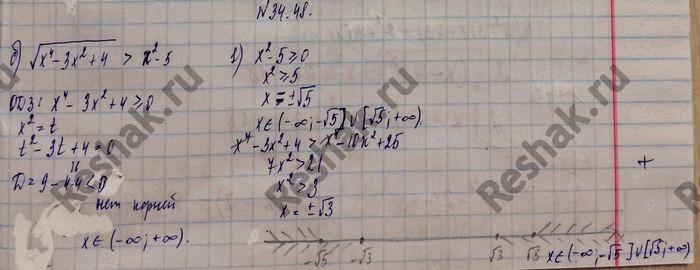 N34.48.
б) √x⁴-3x²+4 > x²-5
ОДЗ: x⁴-3x²+4≥0
x²=t
t²-3t+4=0
D=9-4·4<0
нет корней
x∈(-∞;+∞).
1) x²-5≥0
x²≥5
x=±√5
x∈(-∞;-√5]∪[√5;+∞).
x⁴-3x²+4>x⁴-10x²+25
7x²>21
x²>3
x=±√3
+
-√5 -√3 √3 √5
x∈(-∞;-√5]∪[√5;+∞)
Reshak.ru
Reshak.ru
Reshak.ru